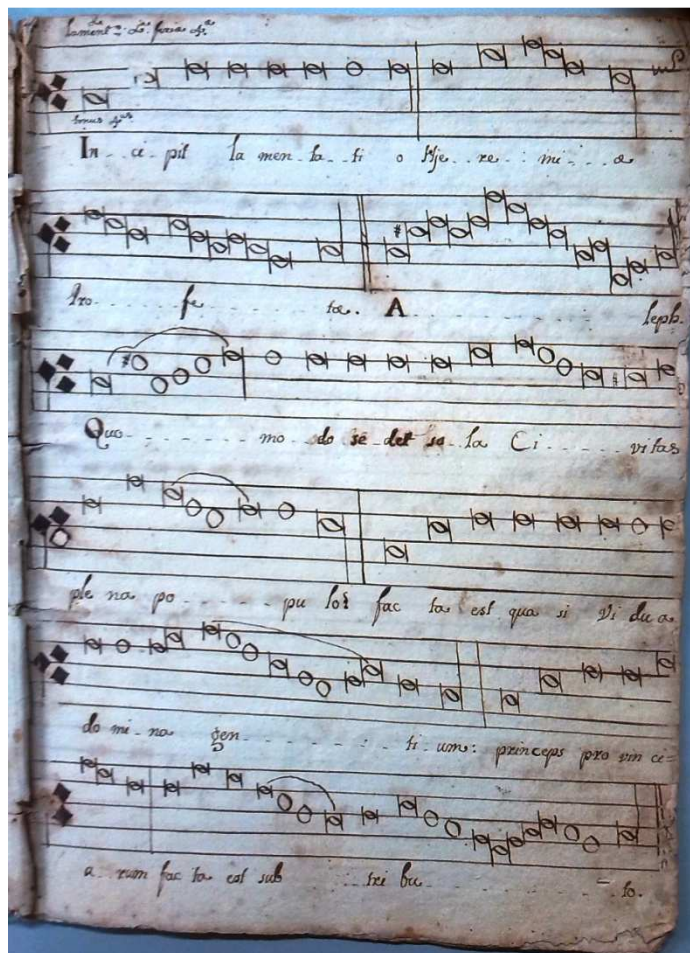 lament.
In - ci - pit la men - ta - ti o Hje - re - mi - - æ
Pro - - - - fe - - - - tæ. A - - - - - - leph.
Quo - - - - - - mo - do se - det so - la Ci - - - - - vitas
ple na po - - - - - pu los fac ta est qua si Vi du a
do mi - na gen - - - - - - - - ti - um: princeps pro vin ci=
a - rum fac ta est sub - - - tri bu - - - - - - - to.